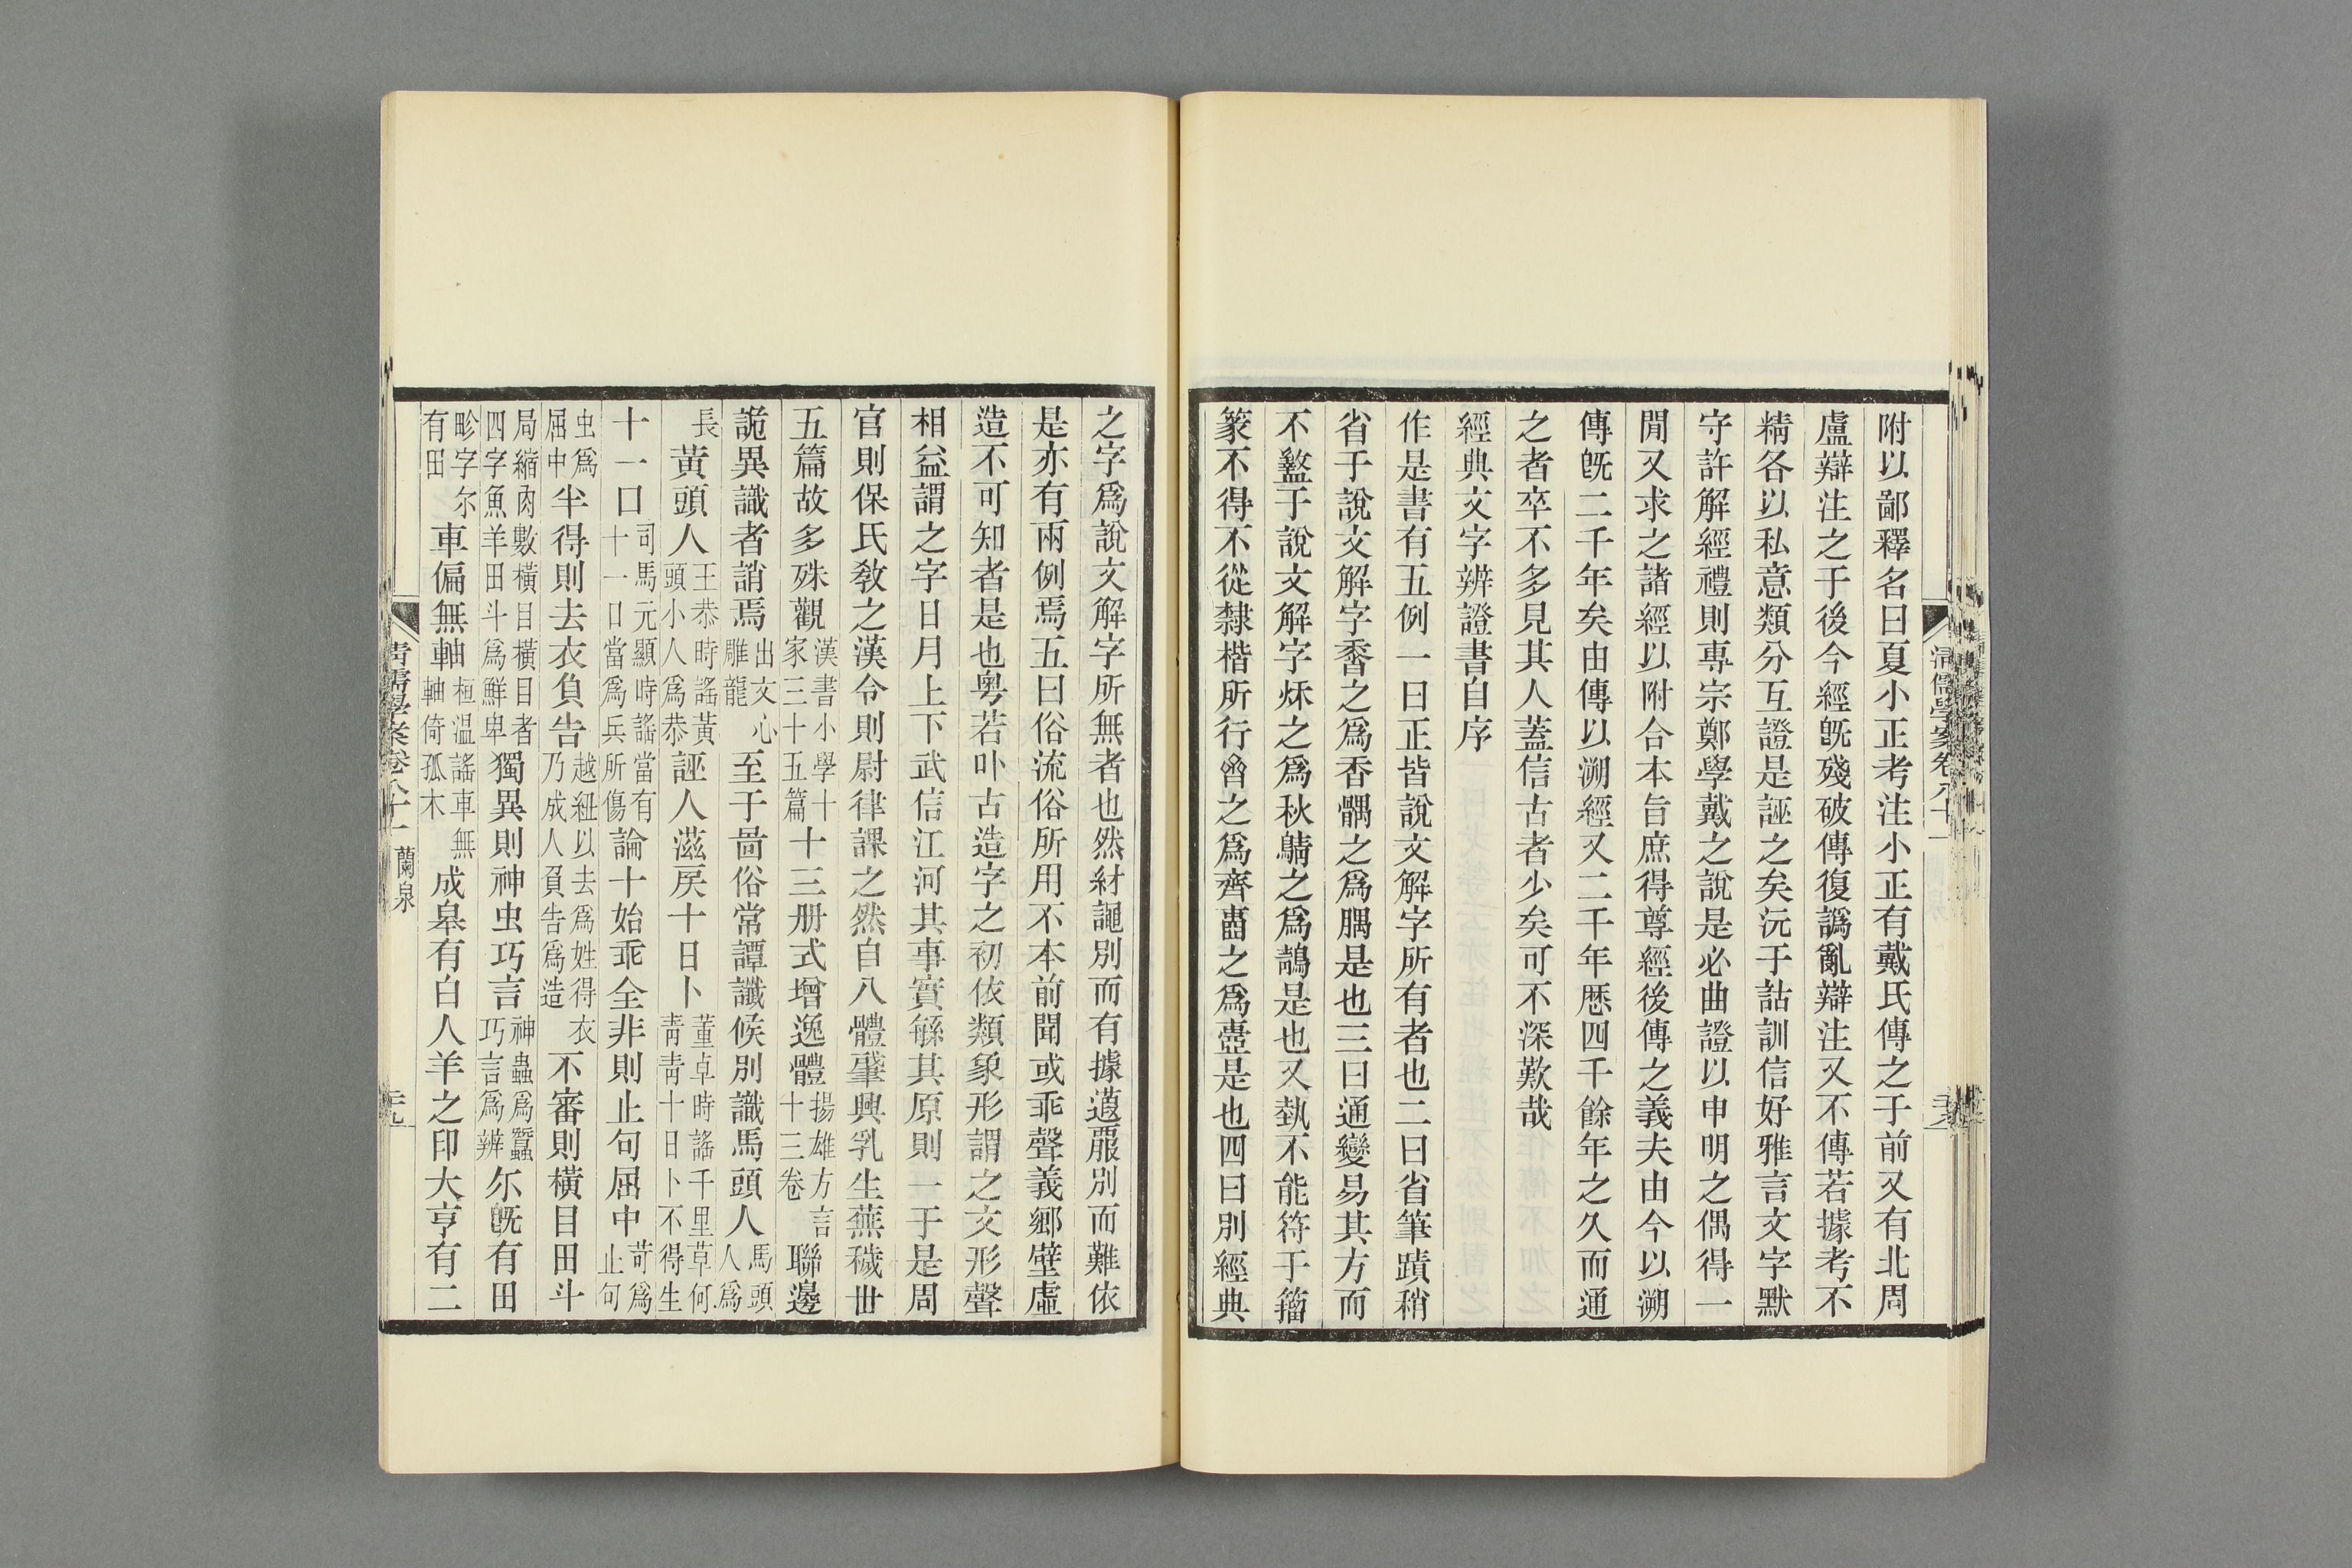 附以鄙釋名曰夏小正考注小正有戴氏傳之于前又有北周
盧辯注之于後今經旣殘破傳復譌亂辯注又不傳若據考不
精各以私意類分互證是誣之矣沅于詁訓信好雅言文字默
守許解經禮則專宗鄭學戴之說是必曲證以申明之偶得一
閒又求之諸經以附合本旨庶得尊經後傳之義夫由今以溯
傳旣二千年矣由傳以溯經又二千年歷四千餘年之久而通
之者卒不多見其人蓋信古者少矣可不深歎哉
經典文字辨證書自序
作是書有五例一曰正皆說文解字所有者也二曰省筆蹟稍
省于說文解字黁之爲香髃之爲腢是也三曰通變易其方而
不盭于說文解字秌之爲秋鶄之爲鶄是也又執不能符于籀
篆不得不從隸楷所行之爲齊之爲壼是也四曰別經典
之字爲說文解字所無者也然紂譝別而有據䓊覗別而難依
是亦有兩例焉五曰俗流俗所用不本前聞或乖聲義鄉壁虛
造不可知者是也粵若卟古造字之初依類象形謂之文形聲
相益謂之字日月上下武信江河其事實緐其原則一于是周
官則保氏敎之漢令則尉律課之然自八體肇興乳生蕪穢丗
五篇故多殊觀漢書小學十家三十五篇十三册式增逸體揚雄方言十三卷聯邊
詭異識者誚焉出文心雕龍至于啚俗常譚讖候別識馬頭人馬頭人爲
長黃頭人王恭時謠黃頭小人爲恭誣人滋戾十日卜董卓時謠千里草何靑靑十日卜不得生
十一口司馬元顯時謠當有十一口當爲兵所傷論十始乖全非則止句屈中苛爲止句
虫爲屈中𢆉得則去衣負告越紐以去爲姓得衣乃成人負告爲造不審則橫目田斗
局縮肉數橫目橫目者四字魚羊田斗爲鮮卑獨異則神虫巧言神蟲爲蠶巧言爲辨尒旣有田
畛字尔有田車偏無軸桓温謠車無軸倚孤木成皋有白人羊之印大亨有二
淸儒學案卷八十一
蘭泉